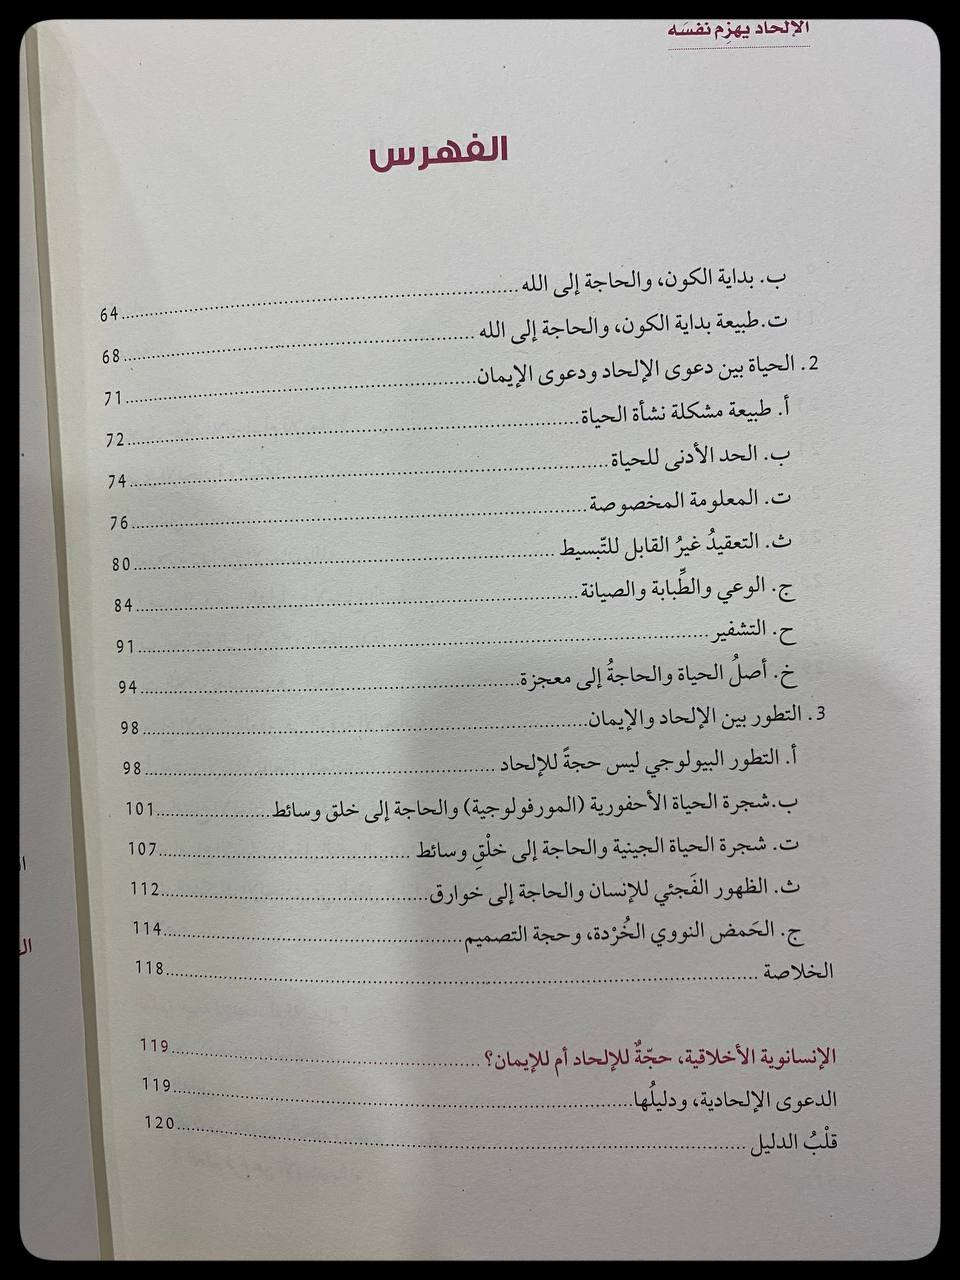 الإلحاد يهزم نفسَه
الفهرس
ب. بداية الكون، والحاجة إلى الله ........ 64
ت.طبيعة بداية الكون، والحاجة إلى الله ........ 68
2. الحياة بين دعوى الإلحاد ودعوى الإيمان ........ 71
أ. طبيعة مشكلة نشأة الحياة ........ 72
ب. الحد الأدنى للحياة ........ 74
ت. المعلومة المخصوصة ........ 76
ث. التعقيدُ غيرُ القابل للتّبسيط ........ 80
ج. الوعي والطِّبابة والصيانة ........ 84
ح. التشفير ........ 91
خ. أصلُ الحياة والحاجةُ إلى معجزة ........ 94
3. التطور بين الإلحاد والإيمان ........ 98
أ. التطور البيولوجي ليس حجةً للإلحاد ........ 98
ب.شجرة الحياة الأحفورية (المورفولوجية) والحاجة إلى خلق وسائط ........ 101
ت. شجرة الحياة الجينية والحاجة إلى خلْقِ وسائط ........ 107
ث. الظهور الفَجئي للإنسان والحاجة إلى خوارق ........ 112
ج. الحَمض النووي الخُرْدة، وحجة التصميم ........ 114
الخلاصة ........ 118
الإنسانوية الأخلاقية، حجّةٌ للإلحاد أم للإيمان؟ ........ 119
الدعوى الإلحادية، ودليلُها ........ 119
قلْبُ الدليل ........ 120